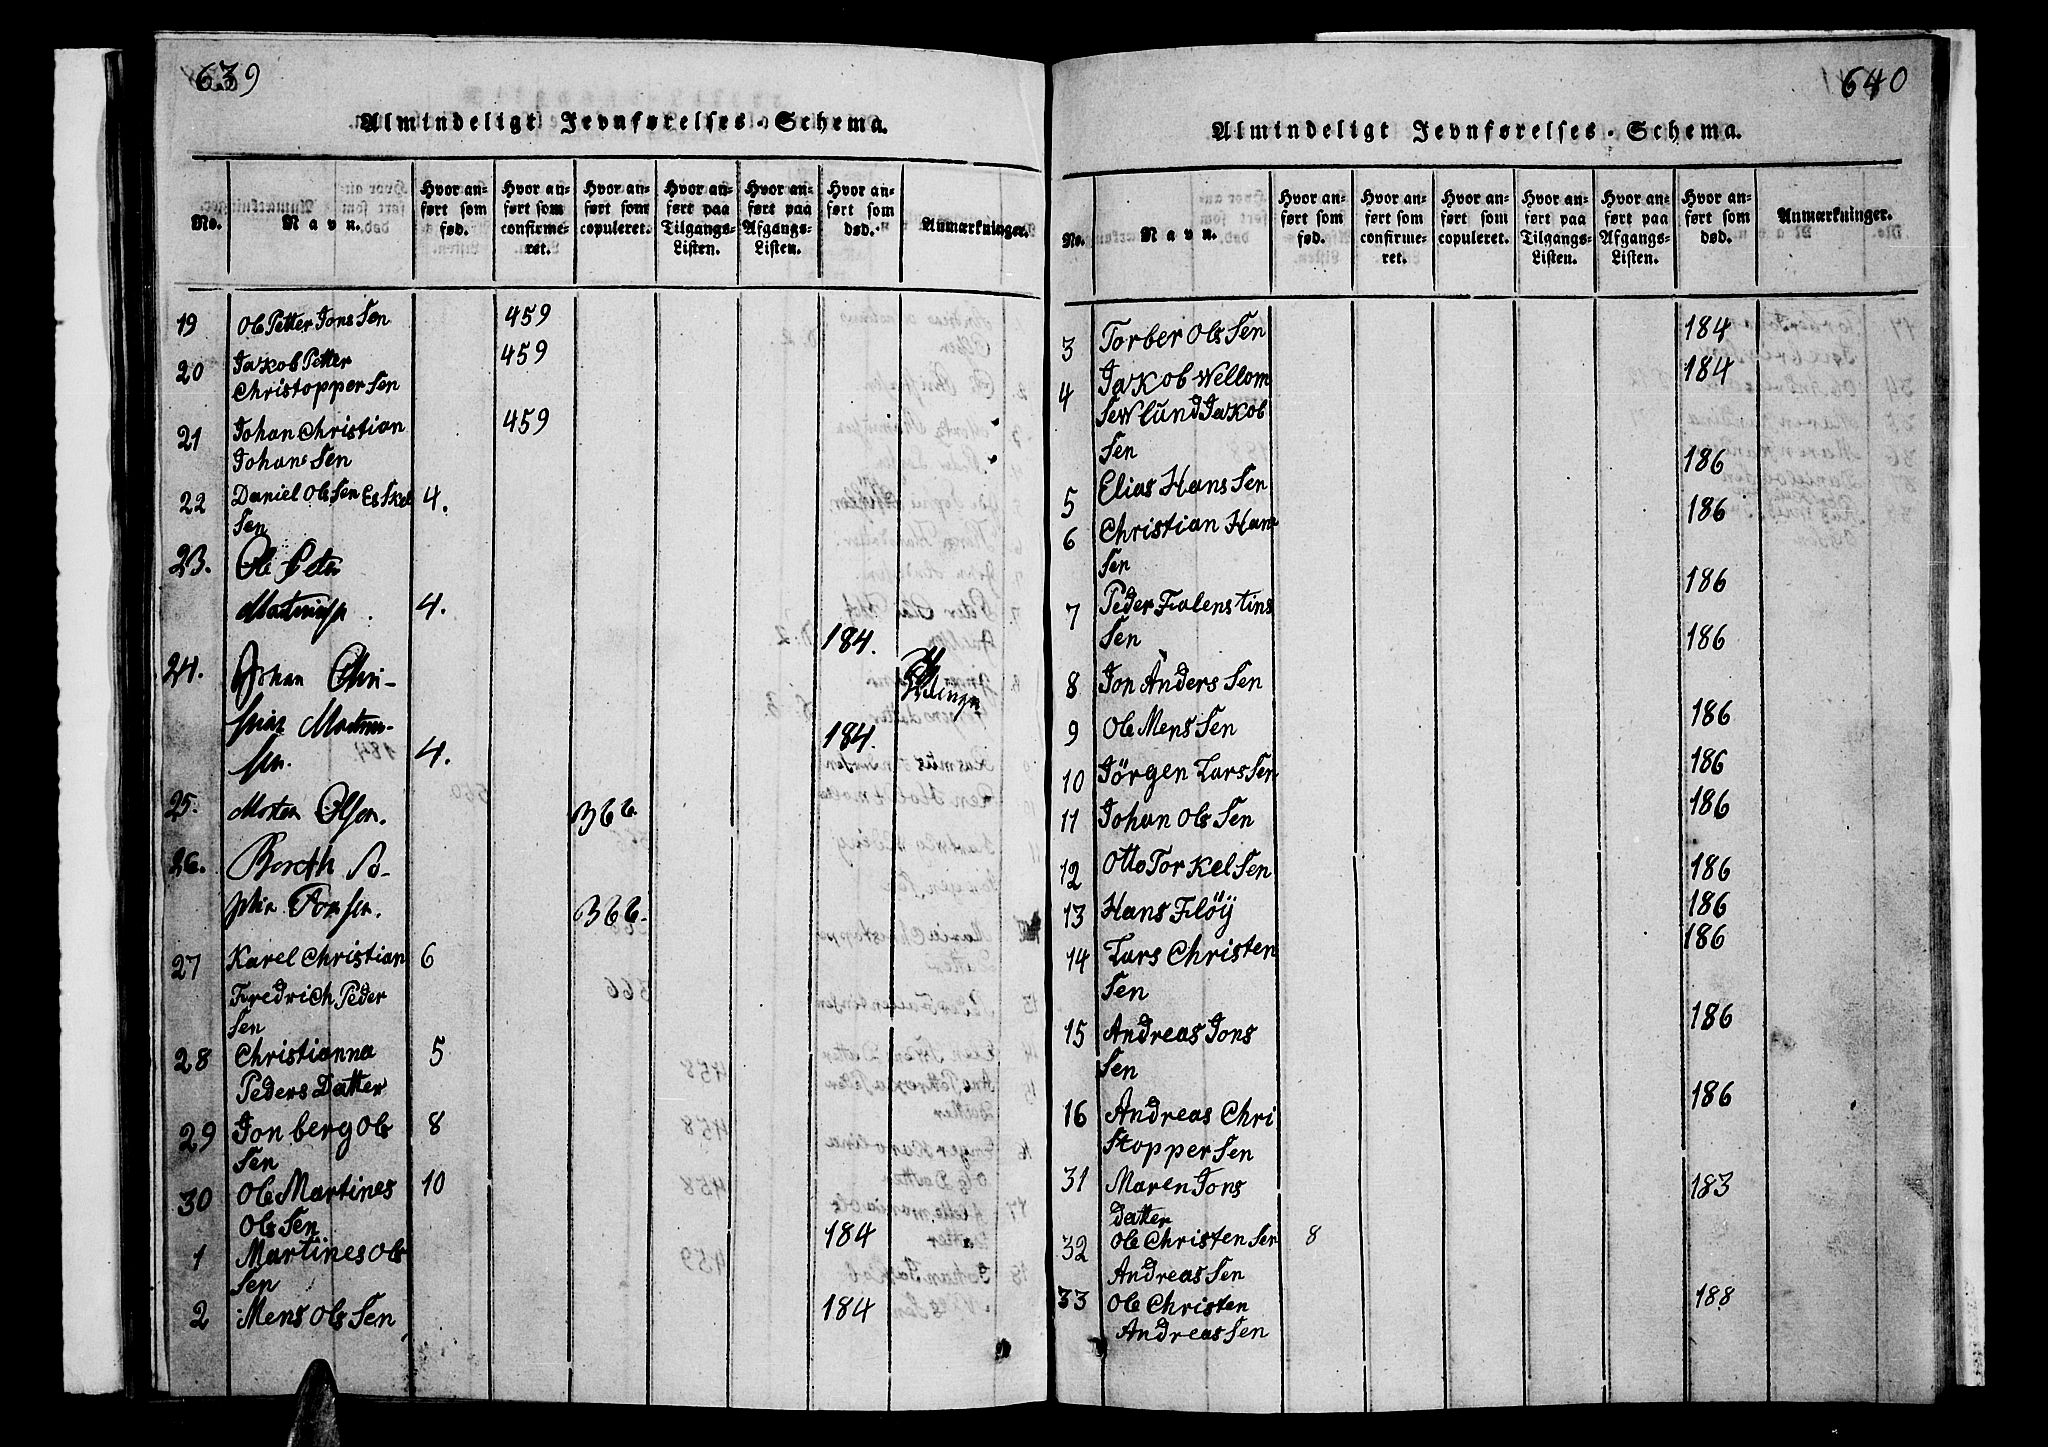 639
Almindeligt Jevnførelses-Schema.
No.
Navn.
Hvor anført som fød.
Hvor anført som confirmeret.
Hvor anført som copuleret.
Hvor anført paa Tilgangs-Listen.
Hvor anført paa Afgangs-Listen.
Hvor anført som død.
Anmærkninger.
19 Ole Petter Jons Sen 459
20 Jakob Petter 459
Christopper Sen
21 Johan Christian 459
Johans Sen
22 Daniel Ols Sen Eskel 4.
Sen
23. Ole Peter
4.
184.
24. Johan Chri-
stian
184.
sen. 4.
25. Morten Olsen. 366
26. Bereth So-
phia 366.
27 Karel Christian 6
Fredrich Peder
Sen
28 Christianna 5
Peders Datter
29 Jon berg Ols 8
Sen
30 Ole Martines 10
Ols Sen
1 Martines Ols 184
Sen
2 Mens Ols Sen 184
640
Almindeligt Jevnførelses-Schema.
No.
Navn.
Hvor anført som fød.
Hvor anført som confirmeret.
Hvor anført som copuleret.
Hvor anført paa Tilgangs-Listen.
Hvor anført paa Afgangs-Listen.
Hvor anført som død.
Anmærkninger.
3 Torber Ols Sen 184
4 Jakob Wellom 184
Sewlund Jakob
Sen
5 Elias Hans Sen 186
6 Christian Hans 186
Sen
7 Peder Falenstins 186
Sen
8 Jon Anders Sen 186
9 Ole Mens Sen 186
10 Jörgen Lars Sen 186
11 Johan Ols Sen 186
12 Otto Torkel Sen 186
13 Hans Fløÿ 186
14 Lars Christen 186
Sen
15 Andreas Jons 186
Sen
16 Andreas Chri 186
Stopper Sen
31 Maren Jons 183
Datter
32 Ole Christen Sen 8
Andreas Sen
33 Ole Christen 188
Andreas Sen